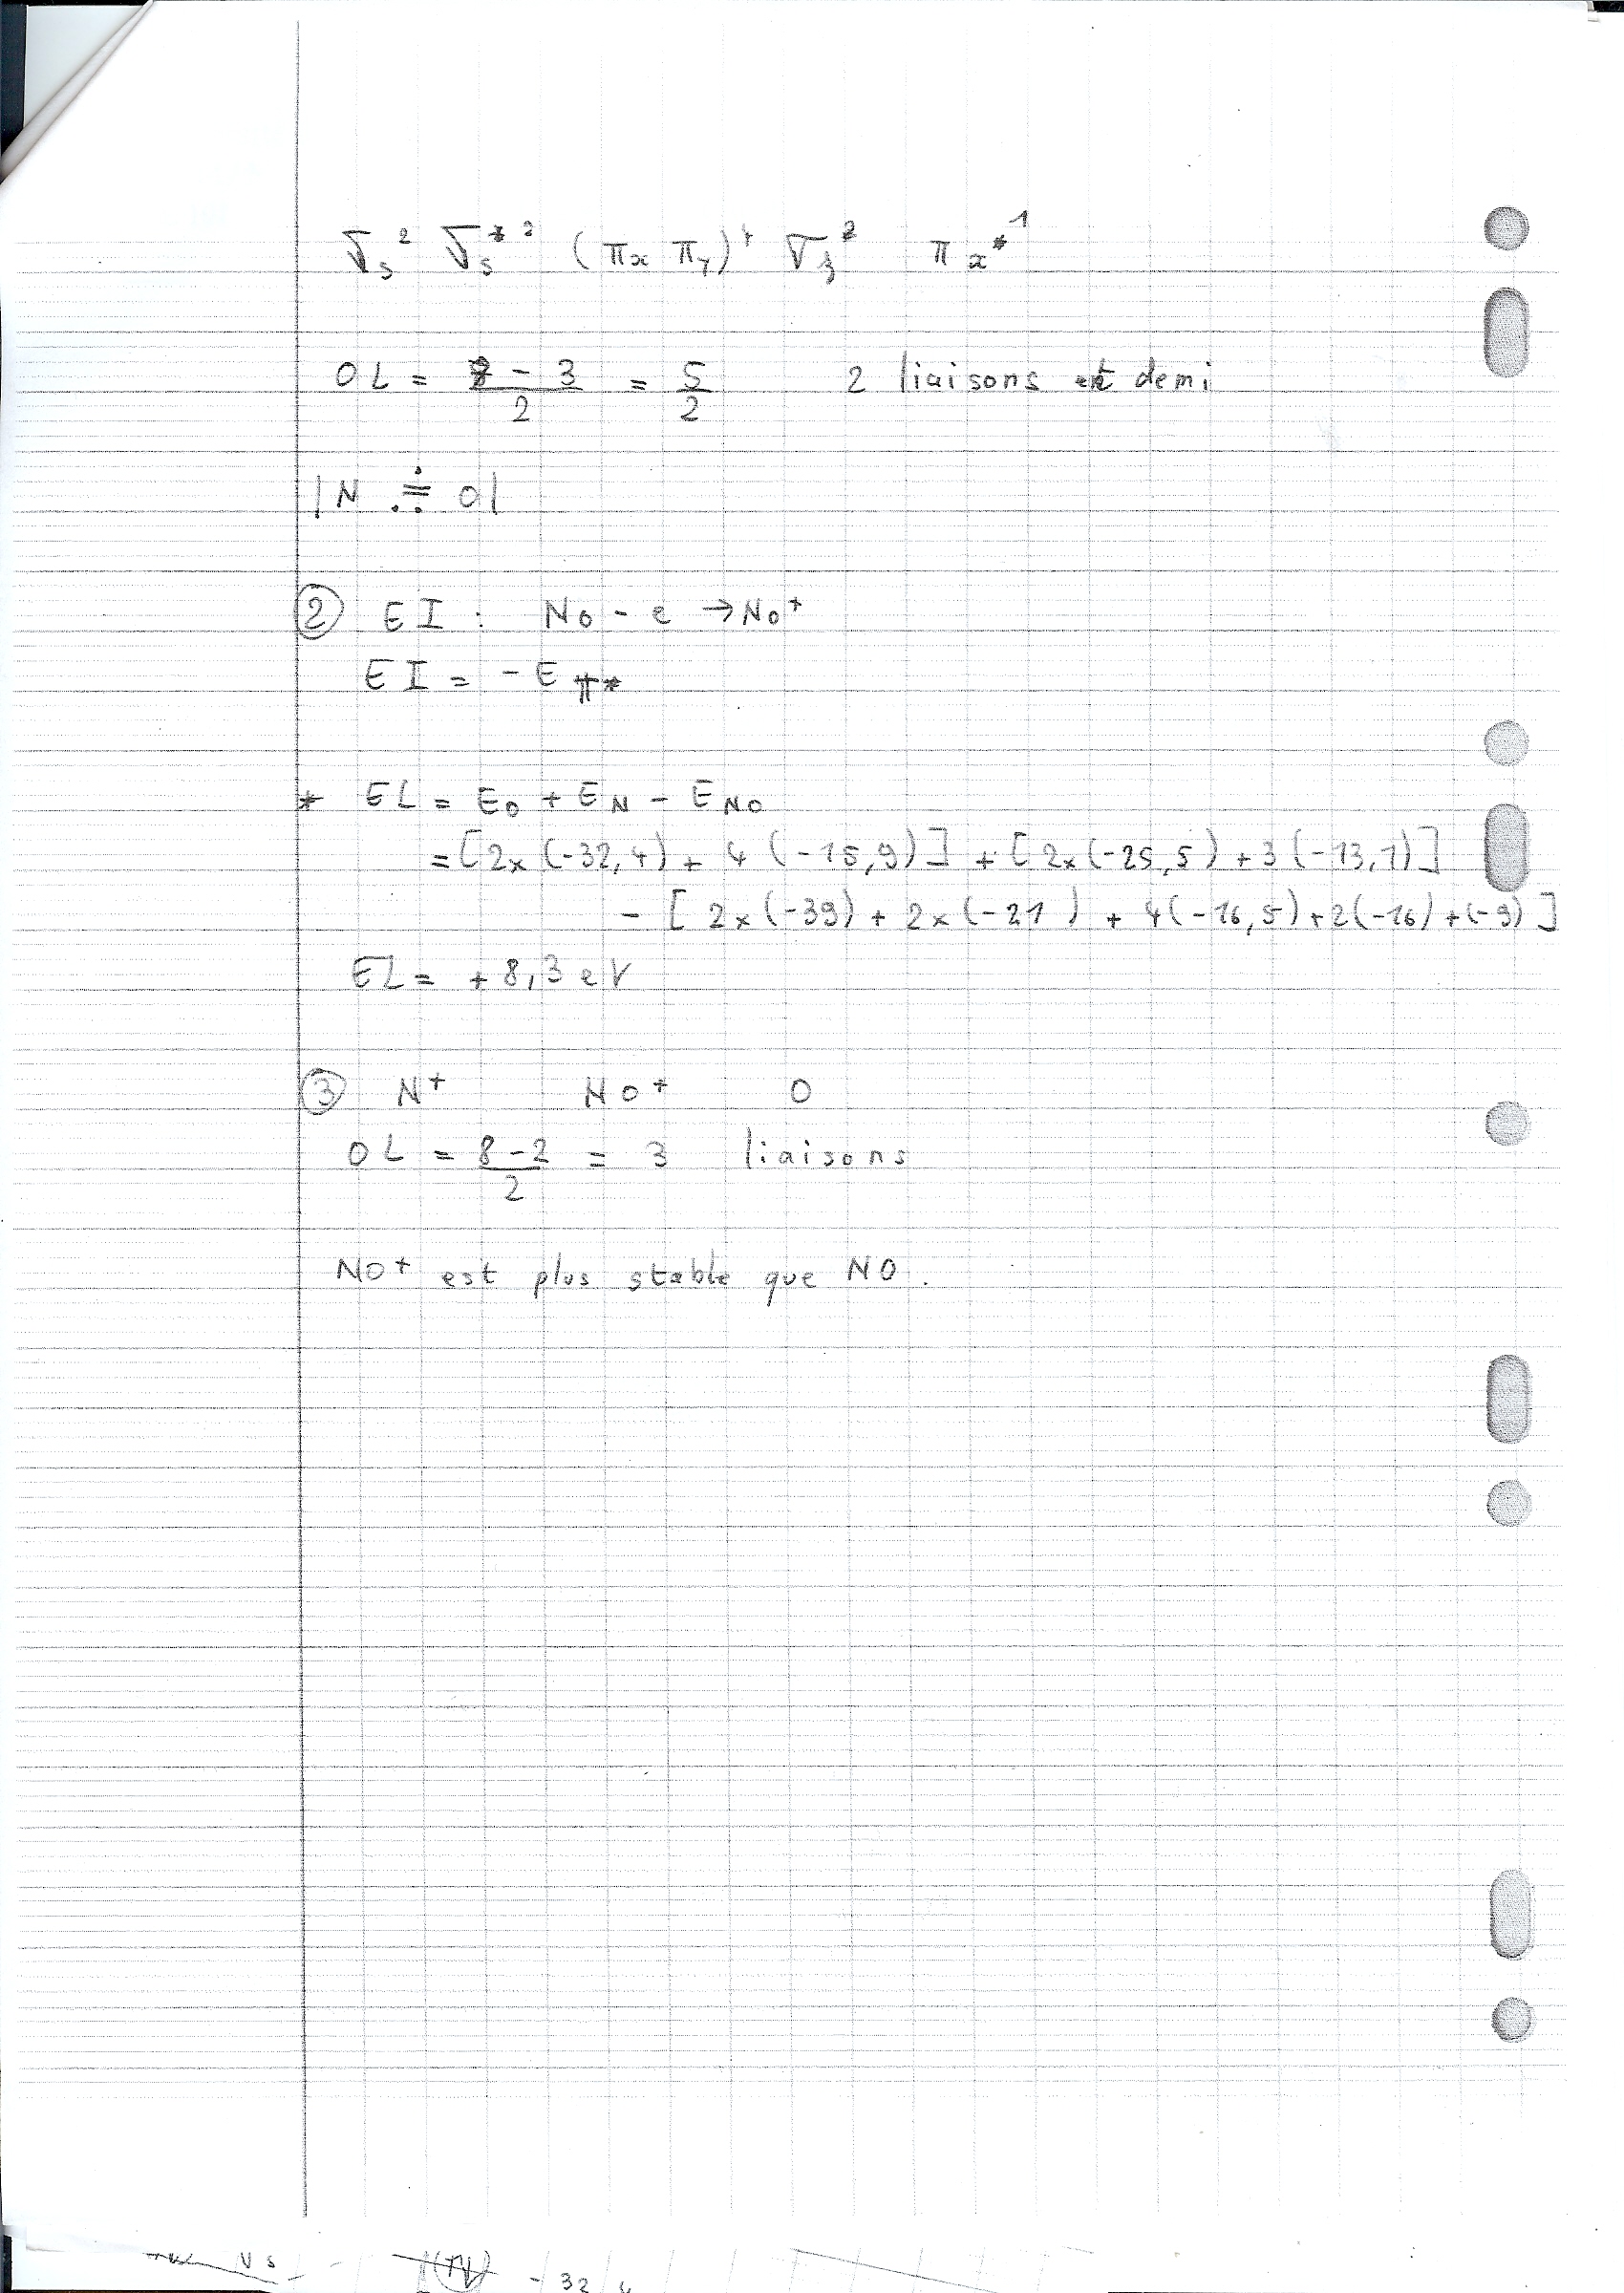 σs² σs*² (πx πy)⁴ σz² πx*¹
OL = (8 - 3)/2 = 5/2 2 liaisons et demi
|N ∸ O|
② EI : NO - e → NO⁺
EI = - E π*
* EL = EO + EN - ENO
= [2x (-32,4) + 4 (-15,9)] + [2x(-25,5) + 3(-13,1)]
- [2x(-39) + 2x(-21) + 4(-16,5)+2(-16)+(-9)]
EL = + 8,3 eV
③ N⁺ NO⁺ O
OL = (8-2)/2 = 3 liaisons
NO⁺ est plus stable que NO.
- 32